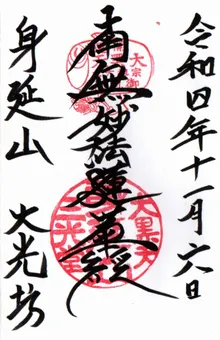 令和四年十一月六日
南無妙法蓮華経
身延山 大光坊
大黒天